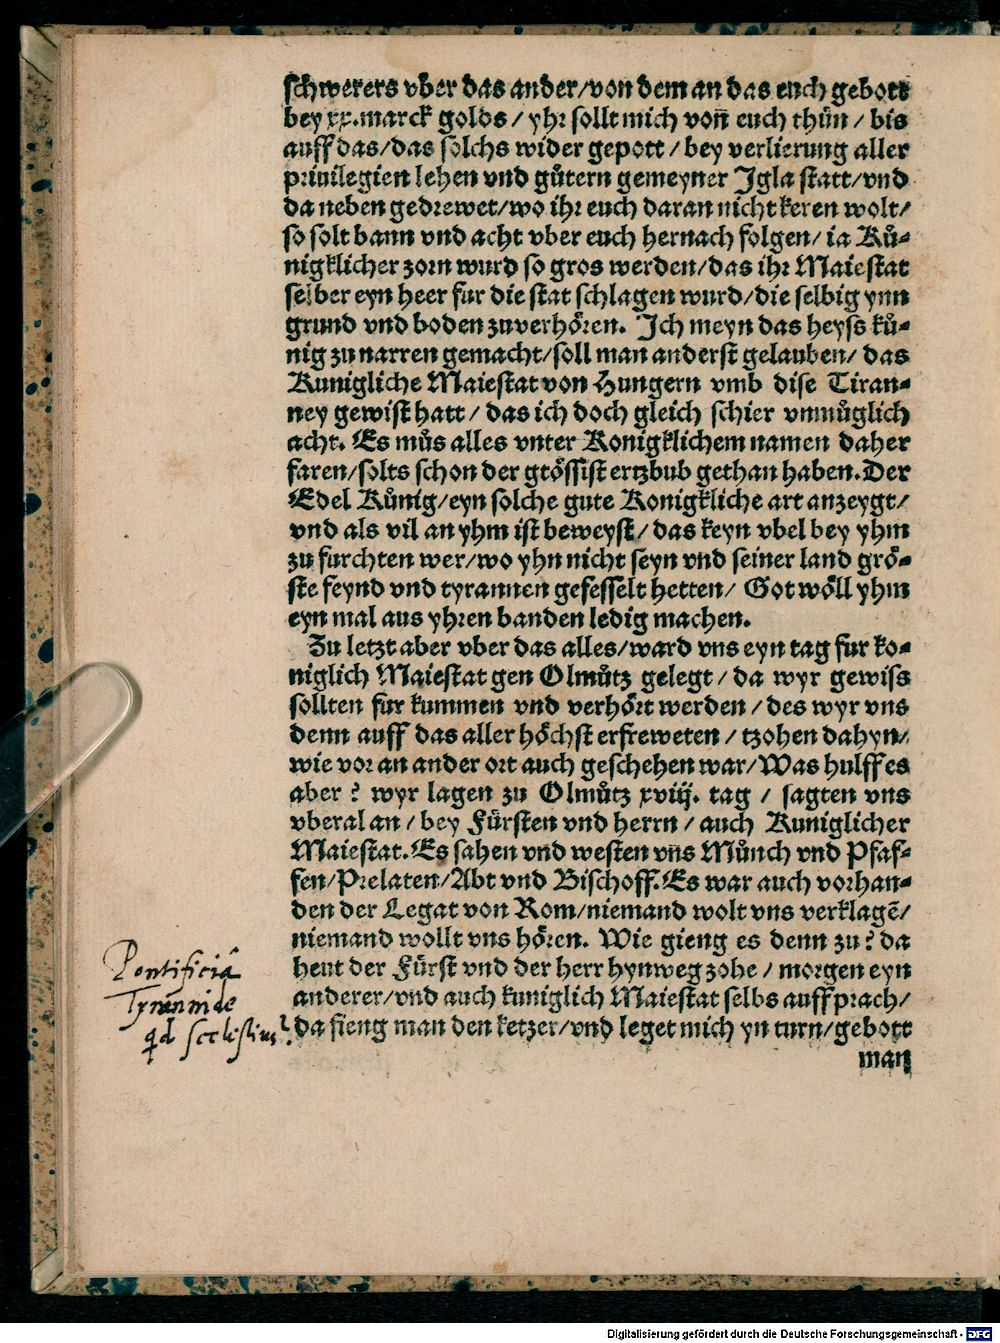 schwerers vber das ander/von dem an das euch gebott
bey xx.marck golds / yhr sollt mich von̄ euch thůn / bis
auff das/das solchs wider gepott / bey verlierung aller
priuilegien lehen vnd gůtern gemeyner Igla statt/vnd
da neben gedrewet/wo ihr euch daran nicht keren wolt/
so solt bann vnd acht vber euch hernach folgen/ ia Ků-
nigklicher zorn wurd so gros werden/das ihr Maiestat
selber eyn heer fur die stat schlagen wurd/die selbig ynn
grund vnd boden zuverhören. Ich meyn das heyss ků-
nig zu narren gemacht/soll man anderst gelauben/ das
Kunigliche Maiestat von Hungern vmb dise Tiran-
ney gewist hatt / das ich doch gleich schier vnmůglich
acht. Es můs alles vnter Konigklichem namen daher
faren/solts schon der grössist ertzbub gethan haben. Der
Edel Kůnig/eyn solche gute Konigkliche art anzeygt/
vnd als vil an yhm ist beweyst/ das keyn vbel bey yhm
zu furchten wer/wo yhn nicht seyn vnd seiner land grö-
ste feynd vnd tyrannen gefesselt hetten/ Got wöll yhm
eyn mal aus yhren banden ledig machen.
Zu letzt aber vber das alles/ward vns eyn tag fur ko-
niglich Maiestat gen Olmůtz gelegt / da wyr gewiss
sollten fur kummen vnd verhört werden / des wyr vns
denn auff das aller höchst erfreweten / tzohen dahyn/
wie vor an ander ort auch geschehen war/Was hulff es
aber? wyr lagen zu Olmůtz xviij. tag / sagten vns
vberal an / bey Fürsten vnd herrn / auch Kuniglicher
Maiestat. Es sahen vnd westen vns Můnch vnd Pfaf-
fen/Prelaten/Abt vnd Bischoff. Es war auch vorhan-
den der Legat von Rom/niemand wolt vns verklagē/
niemand wollt vns hören. Wie gieng es denn zu? da
heut der Fürst vnd der herr hynweg zohe / morgen eyn
anderer/vnd auch kuniglich Maiestat selbs auffprach/
da fieng man den ketzer/vnd leget mich yn turn/gebott
man
Pontificiā
Tyrannide
Digitalisierung gefördert durch die Deutsche Forschungsgemeinschaft - DFG